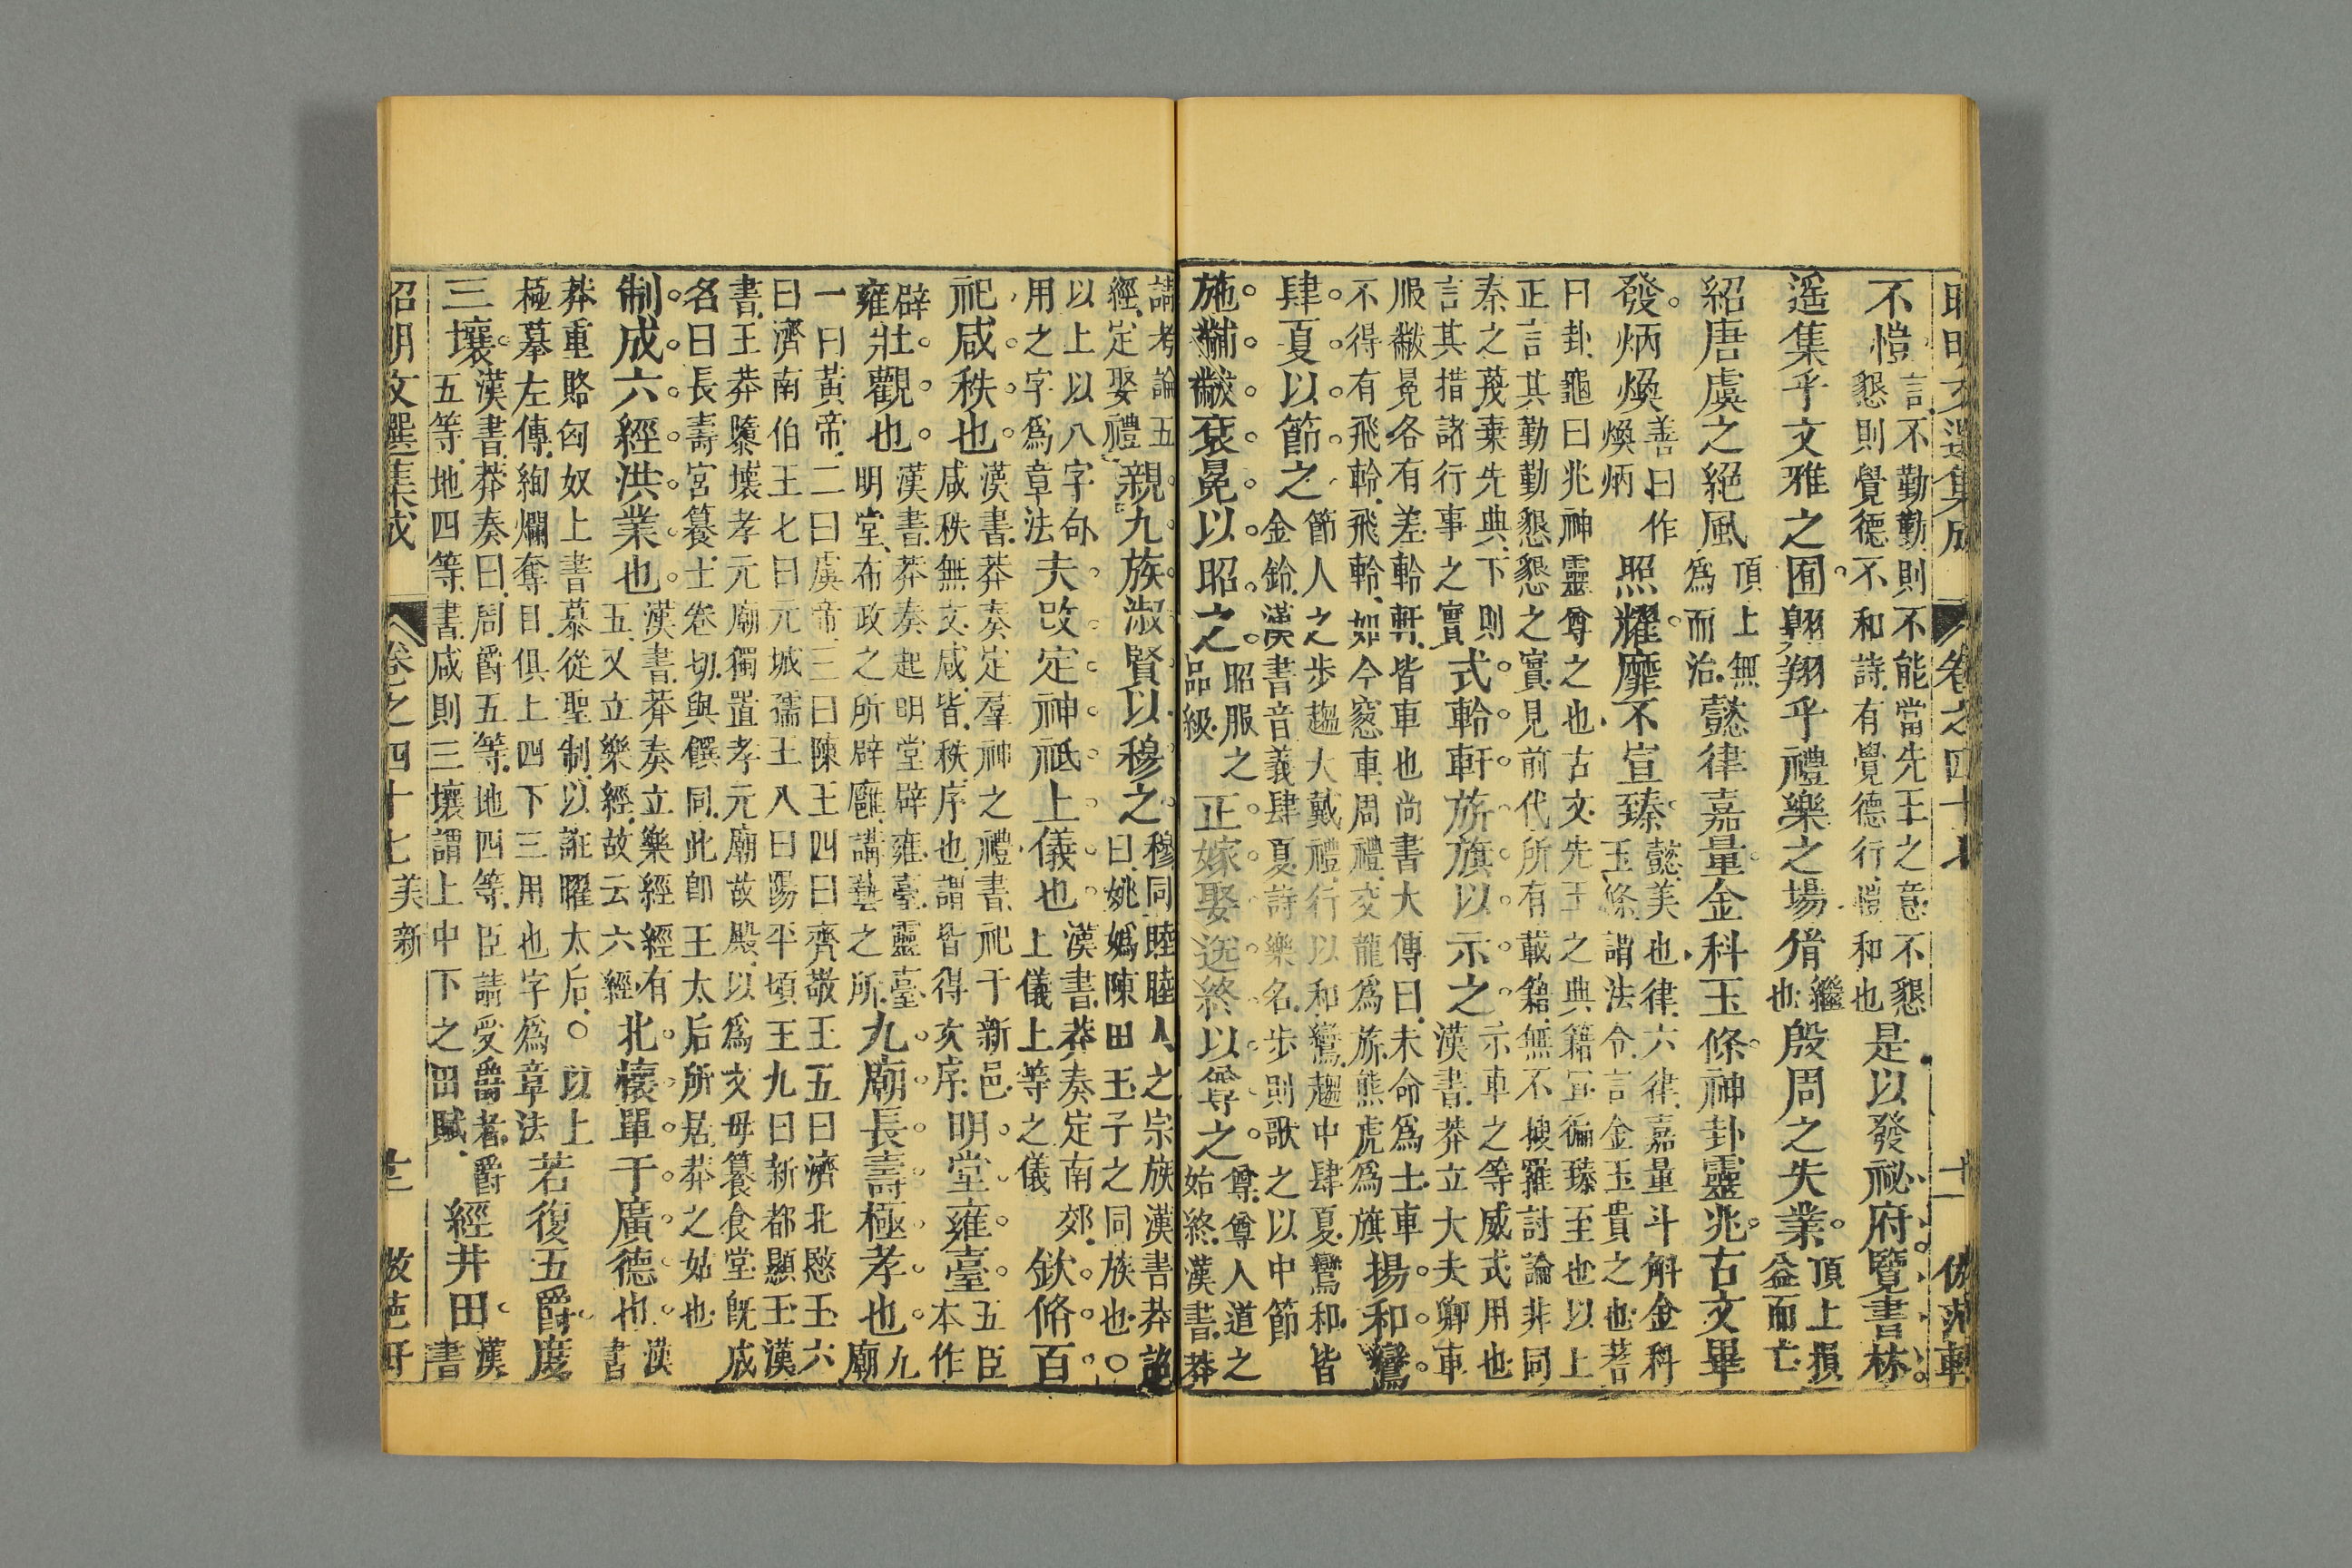 昭明文選集成 卷之四十七 十一 倣范軒
不愷 言不勤勤則不能當先王之意不懇
懇則覺德不和詩有覺德行愷和也 是以發祕府覽書林
遥集乎文雅之囿翺翔乎禮樂之場㣧 繼也 殷周之失業 頂上損益而亡
紹唐虞之絕風 頂上無為而治 懿律嘉量金科玉條神卦靈兆古文畢
發炳煥 善曰作煥炳 照耀靡不宣臻 懿美也律六律嘉量斗斛金科
玉條謂法令言金玉貴之也蓍
曰卦龜曰兆神靈尊之也古文先王之典籍宣徧臻至也以上
正言其勤勤懇懇之實見前代所有載籍無不搜羅討論非同
秦之蔑棄先典下則
言其措諸行事之實 式軨軒旂旗以示之 示車之等威式用也
漢書莽立大夫卿車
服黻冕各有差軨軒皆車也尚書大傳曰未命為士車
不得有飛軨飛軨如今窓車周禮交龍為旂熊虎為旗 揚和鸞
肆夏以節之 節人之步趨大戴禮行以和鸞趨中肆夏鸞和皆
金鈴漢書音義肆夏詩樂名步則歌之以中節
施黼黻袞冕以昭之 昭服之品級 正嫁娶送終以尊之 尊尊人道之
始終漢書莽
講考論五
經定娶禮 親九族淑賢以穆之 穆同睦睦人之宗族漢書莽詔
曰姚媯陳田王子之同族也○
以上以八字句
用之字為章法 夫改定神祇上儀也 漢書莽奏定南郊
上儀上等之儀 欽脩百
祀咸秩也 漢書莽奏定羣神之禮書祀于新邑
咸秩無文咸皆秩序也謂皆得次序 明堂雍臺 五臣本作
辟雍 壯觀也 漢書莽奏起明堂辟雍臺靈臺
明堂布政之所辟廱講藝之所 九廟長壽極孝也 九廟
一曰黃帝二曰虞帝三曰陳王四曰齊敬王五曰濟北愍王六
曰濟南伯王七曰元城孺王八曰陽平頃王九曰新都顯王漢
書王莽隳壞孝元廟獨置孝元廟故殿以為文母篹食堂旣成
名曰長壽宮篹士卷切與饌同此卽王太后所居莽之姑也
制成六經洪業也 漢書莽奏立樂經經有
五又立樂經故云六經 北懷單于廣德也 漢書
莽重賂匈奴上書慕從聖制以誑曜太后○以上
極摹左傳絢爛奪目俱上四下三用也字為章法 若復五爵度
三壤 漢書莽奏曰周爵五等地四等臣請受爵者爵
五等地四等書咸則三壤謂上中下之田賦 經井田 漢書
昭明文選集成 卷之四十七 美新 十二